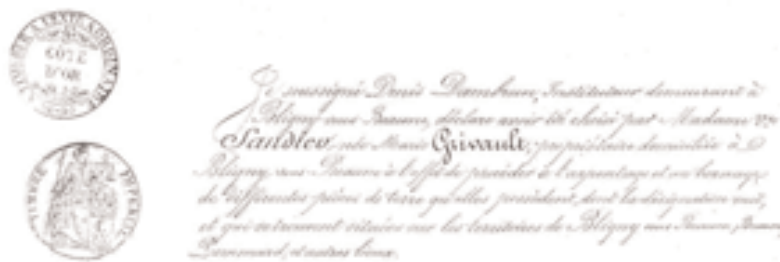 TIMBRE IMPERIAL
Je soussigné Denis Dambrun, Instituteur demeurant à
Bligny sous Beaune, déclare avoir été choisi par Madame Vve
née Marie Grivault, propriétaire domiciliée à
Bligny sous Beaune à l'effet de procéder à l'arpentage et au bornage
de différentes pièces de terre qu'elles possèdent, dont la désignation suit,
et qui se trouvent situées sur les territoires de Bligny sous Beaune,
et autres lieux.